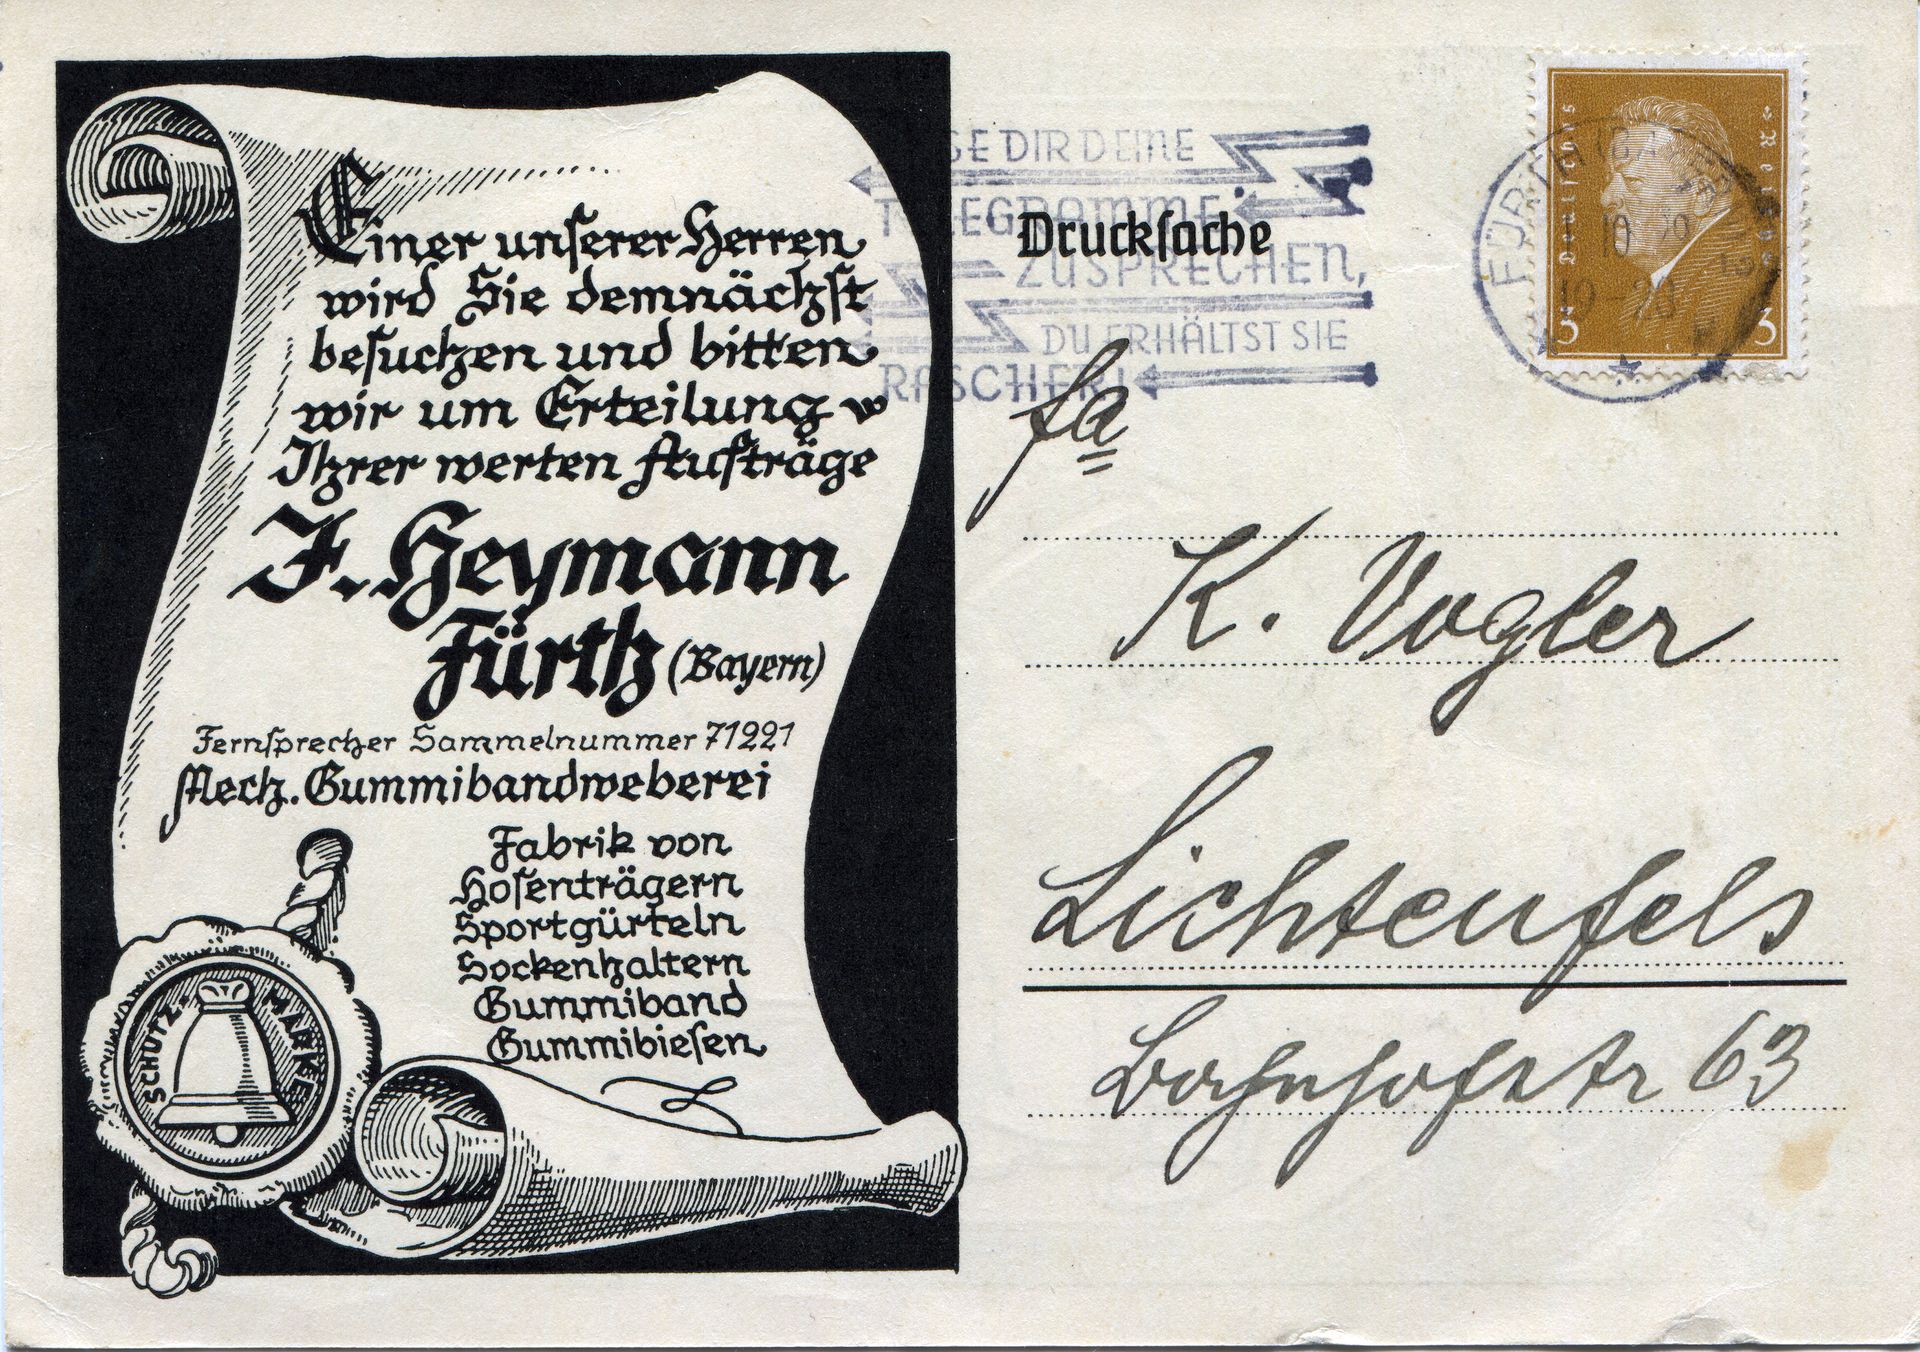 Einer unserer Herren
wird Sie demnächst
besuchen und bitten
wir um Erteilung
Ihrer werten Aufträge
J. Heymann
Fürth (Bayern)
Fernsprecher Sammelnummer 71221
Mech. Gummibandweberei
Fabrik von
Hosenträgern
Sportgürteln
Sockenhaltern
Gummiband
Gummibiesen
SCHUTZ-MARKE
DIR DEINE
TELEGRAMME
ZUSPRECHEN,
DU ERHÄLTST SIE
RASCHER!
Drucksache
Deutsches Reich
3 3
FÜRTH
19-20
Fa
K. Vogler
Lichtenfels
Bahnhofstr 63